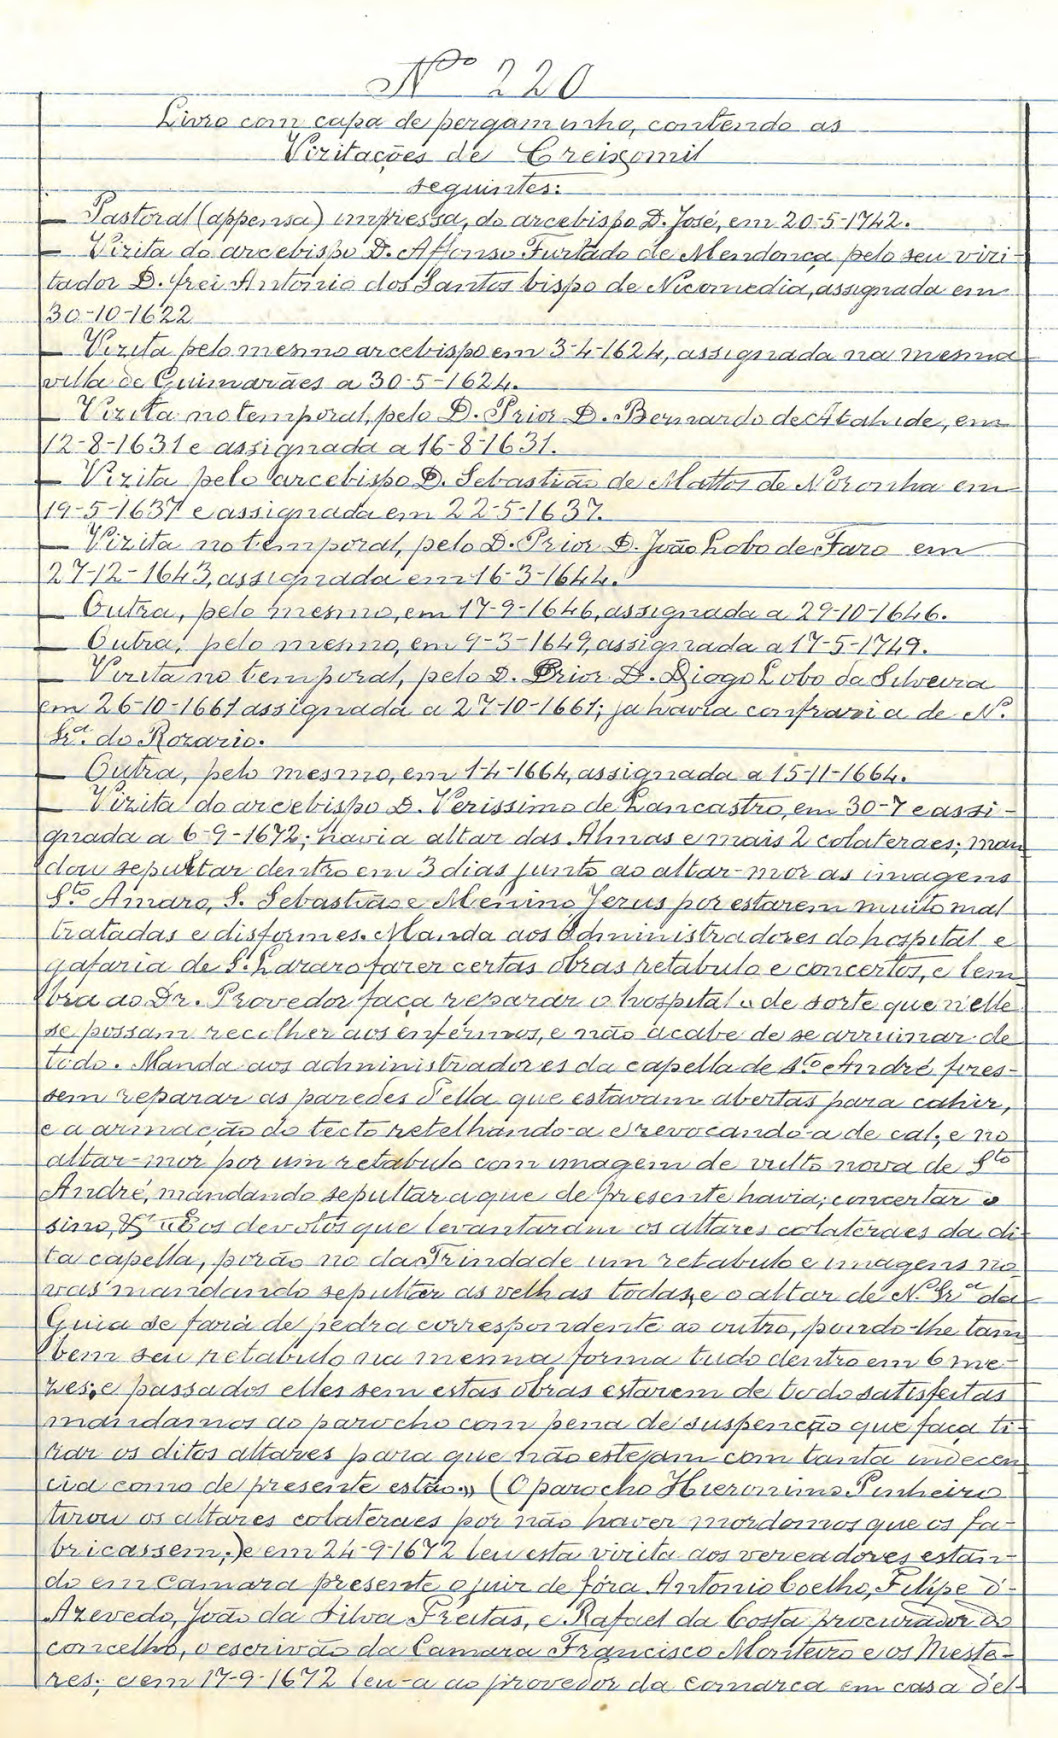 Nº 220
Livro com capa de pergaminho, contendo as
Vizitações de Creixomil
seguintes:
— Pastoral (appensa) impressa, do arcebispo D. José, em 20-5-1742.
— Vizita do arcebispo D. Affonso Furtado de Mendonça pelo seu vizi-
tador D. frei António dos Santos bispo de Nicomedia, assignada em
30-10-1622
— Vizita pelo mesmo arcebispo em 3-4-1624, assignada na mesma
villa de Guimarães a 30-5-1624.
— Vizita no temporal, pelo D. Prior D. Bernardo de Atahide, em
12-8-1631 e assignada a 16-8-1631.
— Vizita pelo arcebispo D. Sebastião de Mattos de Noronha em
19-5-1637 e assignada em 22-5-1637.
— Vizita no temporal, pelo D. Prior D. João Lobo de Faro em
27-12-1643, assignada em 16-3-1644.
— Outra, pelo mesmo, em 17-9-1646, assignada a 29-10-1646.
— Outra, pelo mesmo, em 9-3-1649, assignada a 17-5-1749.
— Vizita no temporal, pelo D. Prior D. Diogo Lobo da Silveira
em 26-10-1661 assignada a 27-10-1661; ja havia confraria de N.
Srª. do Rozario.
— Outra, pelo mesmo, em 1-4-1664, assignada a 15-11-1664.
— Vizita do arcebispo D. Verissimo de Lancastro, em 30-7 e assi-
gnada a 6-9-1672; havia altar das Almas e mais 2 colateraes; man
dou sepultar dentro em 3 dias junto ao altar-mor as imagens
Sto Amaro, S. Sebastião e Menino Jezus por estarem muito mal
tratadas e disformes. Manda aos administradores do hospital e
gafaria de S. Lazaro fazer certas obras retabulo e concertos, e lem
bra ao Dr. Provedor faça reparar o hospital « de sorte que n'elle
se possam recolher aos enfermos, e não acabe de se arruinar de
todo. Manda aos administradores da capella de Sto André fizes-
sem reparar as paredes d'ella que estavam abertas para cahir,
e a armação do tecto retelhando-a e revocando-a de cal, e no
altar-mor por um retabulo com imagem de vulto nova de Sto
André, mandando sepultar a que de presente havia; concertar o
sino, & « Eos devotos que levantaram os altares colateraes da di-
ta capella, porão no da Trindade um retabulo e imagens no
vas mandando sepultar as velhas todas, e o altar de N. Srª da
Guia se fará de pedra correspondente ao outro, pondo-lhe tam
bem seu retabulo na mesma forma tudo dentro em 6 me-
zes; e passados elles sem estas obras estarem de todo satisfeitas
mandamos ao parocho com pena de suspenção que faça ti-
rar os ditos altares para que não estejam com tanta indecen
cia como de presente estão.» (O parocho Hieronimo Pinheiro
tirou os altares colateraes por não haver mordomos que os fa-
bricassem;) e em 24-9-1672 leu esta vizita aos vereadores estan-
do em camara presente o juiz de fóra Antonio Coelho, Filipe d'
Azevedo, João da Silva Freitas, e Rafael da Costa procurador do
concelho, o escrivão da Camara Francisco Monteiro e os Meste-
res; e em 17-9-1672 leu-a ao provedor da comarca em casa d'el-